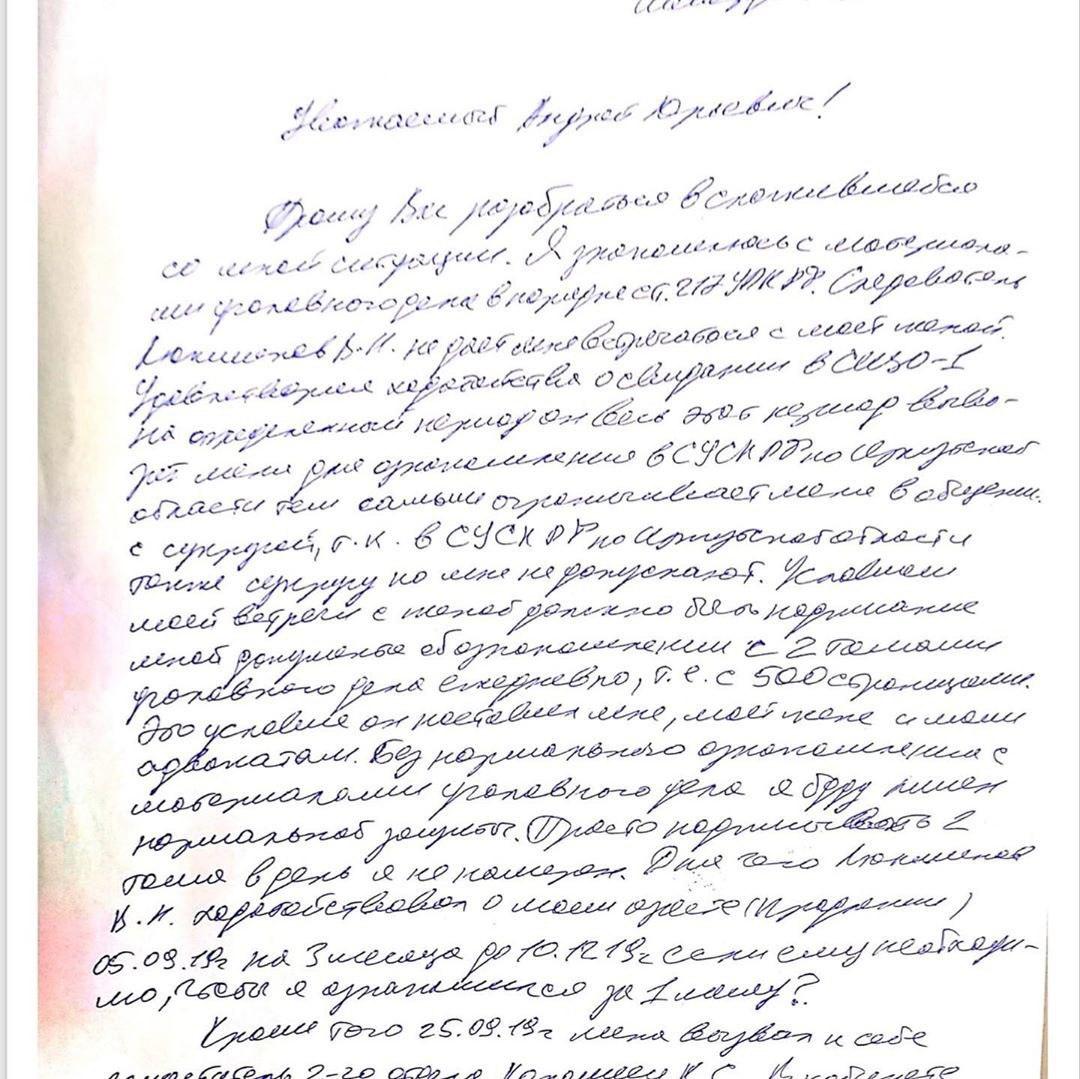 Уважаемый Андрей Юрьевич!
Прошу Вас разобраться в сложившейся
со мной ситуации. Я знакомлюсь с материала-
ми уголовного дела в порядке ст. 217 УПК РФ. Следователь
В.Н. не даёт мне встречаться с моей женой.
Удовлетворяя ходатайства о свидании в СИЗО-1
на определенный период он весь этот период выво-
зит меня для ознакомления в СУ СК РФ по Иркутской
области тем самым ограничивает меня в общении
с супругой, т.к. в СУ СК РФ по Иркутской области
также супругу ко мне не допускают. Условием
моей встречи с женой должно быть подписание
мной документа об ознакомлении с 2 томами
уголовного дела ежедневно, т.е. с 500 страницами.
Это условие он поставил мне, моей жене и моим
адвокатам. Без нормального ознакомления с
материалами уголовного дела я буду лишен
нормальной защиты. Просто подписывать 2
тома в день я не намерен. Для чего
В.Н. ходатайствовал о моем аресте (продлении)
05.09.19г на 3 месяца до 10.12.19г если ему необходи-
мо, чтобы я ознакомился за 1 месяц?
Кроме того 25.09.19г меня вызвал к себе
2-го отдела К.С. В кабинете